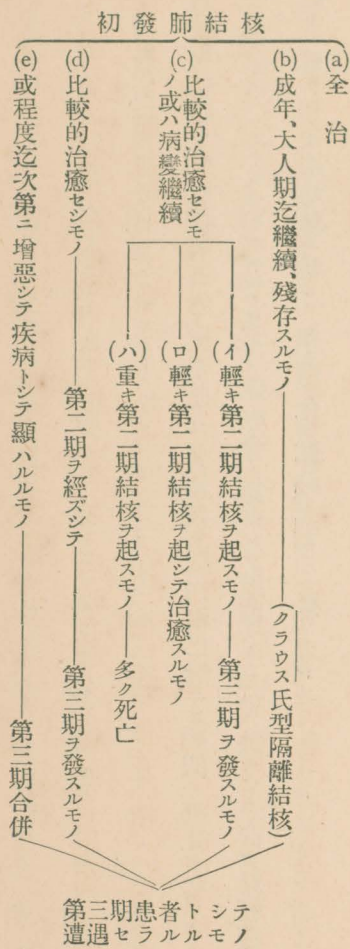 初發肺結核
(a)全治
(b)成年、大人期迄繼續、殘存スルモノ
(クラウス氏型隔離結核)
(c)比較的治癒セシモ
ノ或ハ病變繼續
(イ)輕キ第二期結核ヲ起スモノ
第三期ヲ發スルモノ
(ロ)輕キ第二期結核ヲ起シテ治癒スルモノ
(ハ)重キ第二期結核ヲ起スモノ
多ク死亡
(d)比較的治癒セシモノ
第二期ヲ經ズシテ
第三期ヲ發スルモノ
(e)或程度迄次第ニ增惡シテ疾病トシテ顯ハルルモノ
第三期合併
第三期患者トシテ
遭遇セラルルモノ